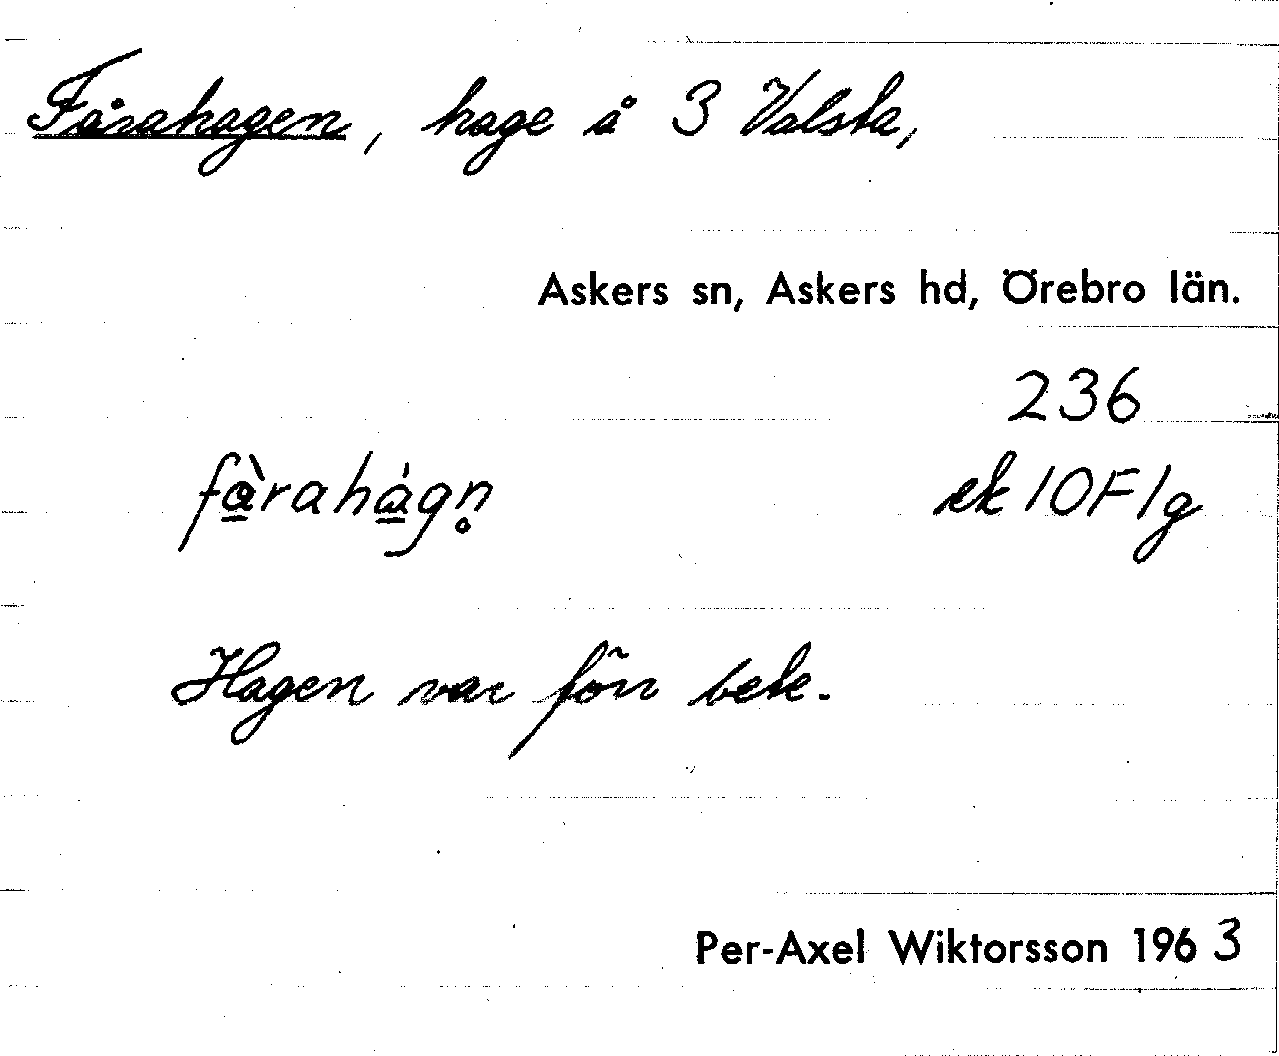 Fårahagen, hage å 3 Valsta,
Askers sn, Askers hd, Örebro län.
236
fàrahágn̥
ek 10F1g
Hagen var förr bete.
Per-Axel Wiktorsson 1963